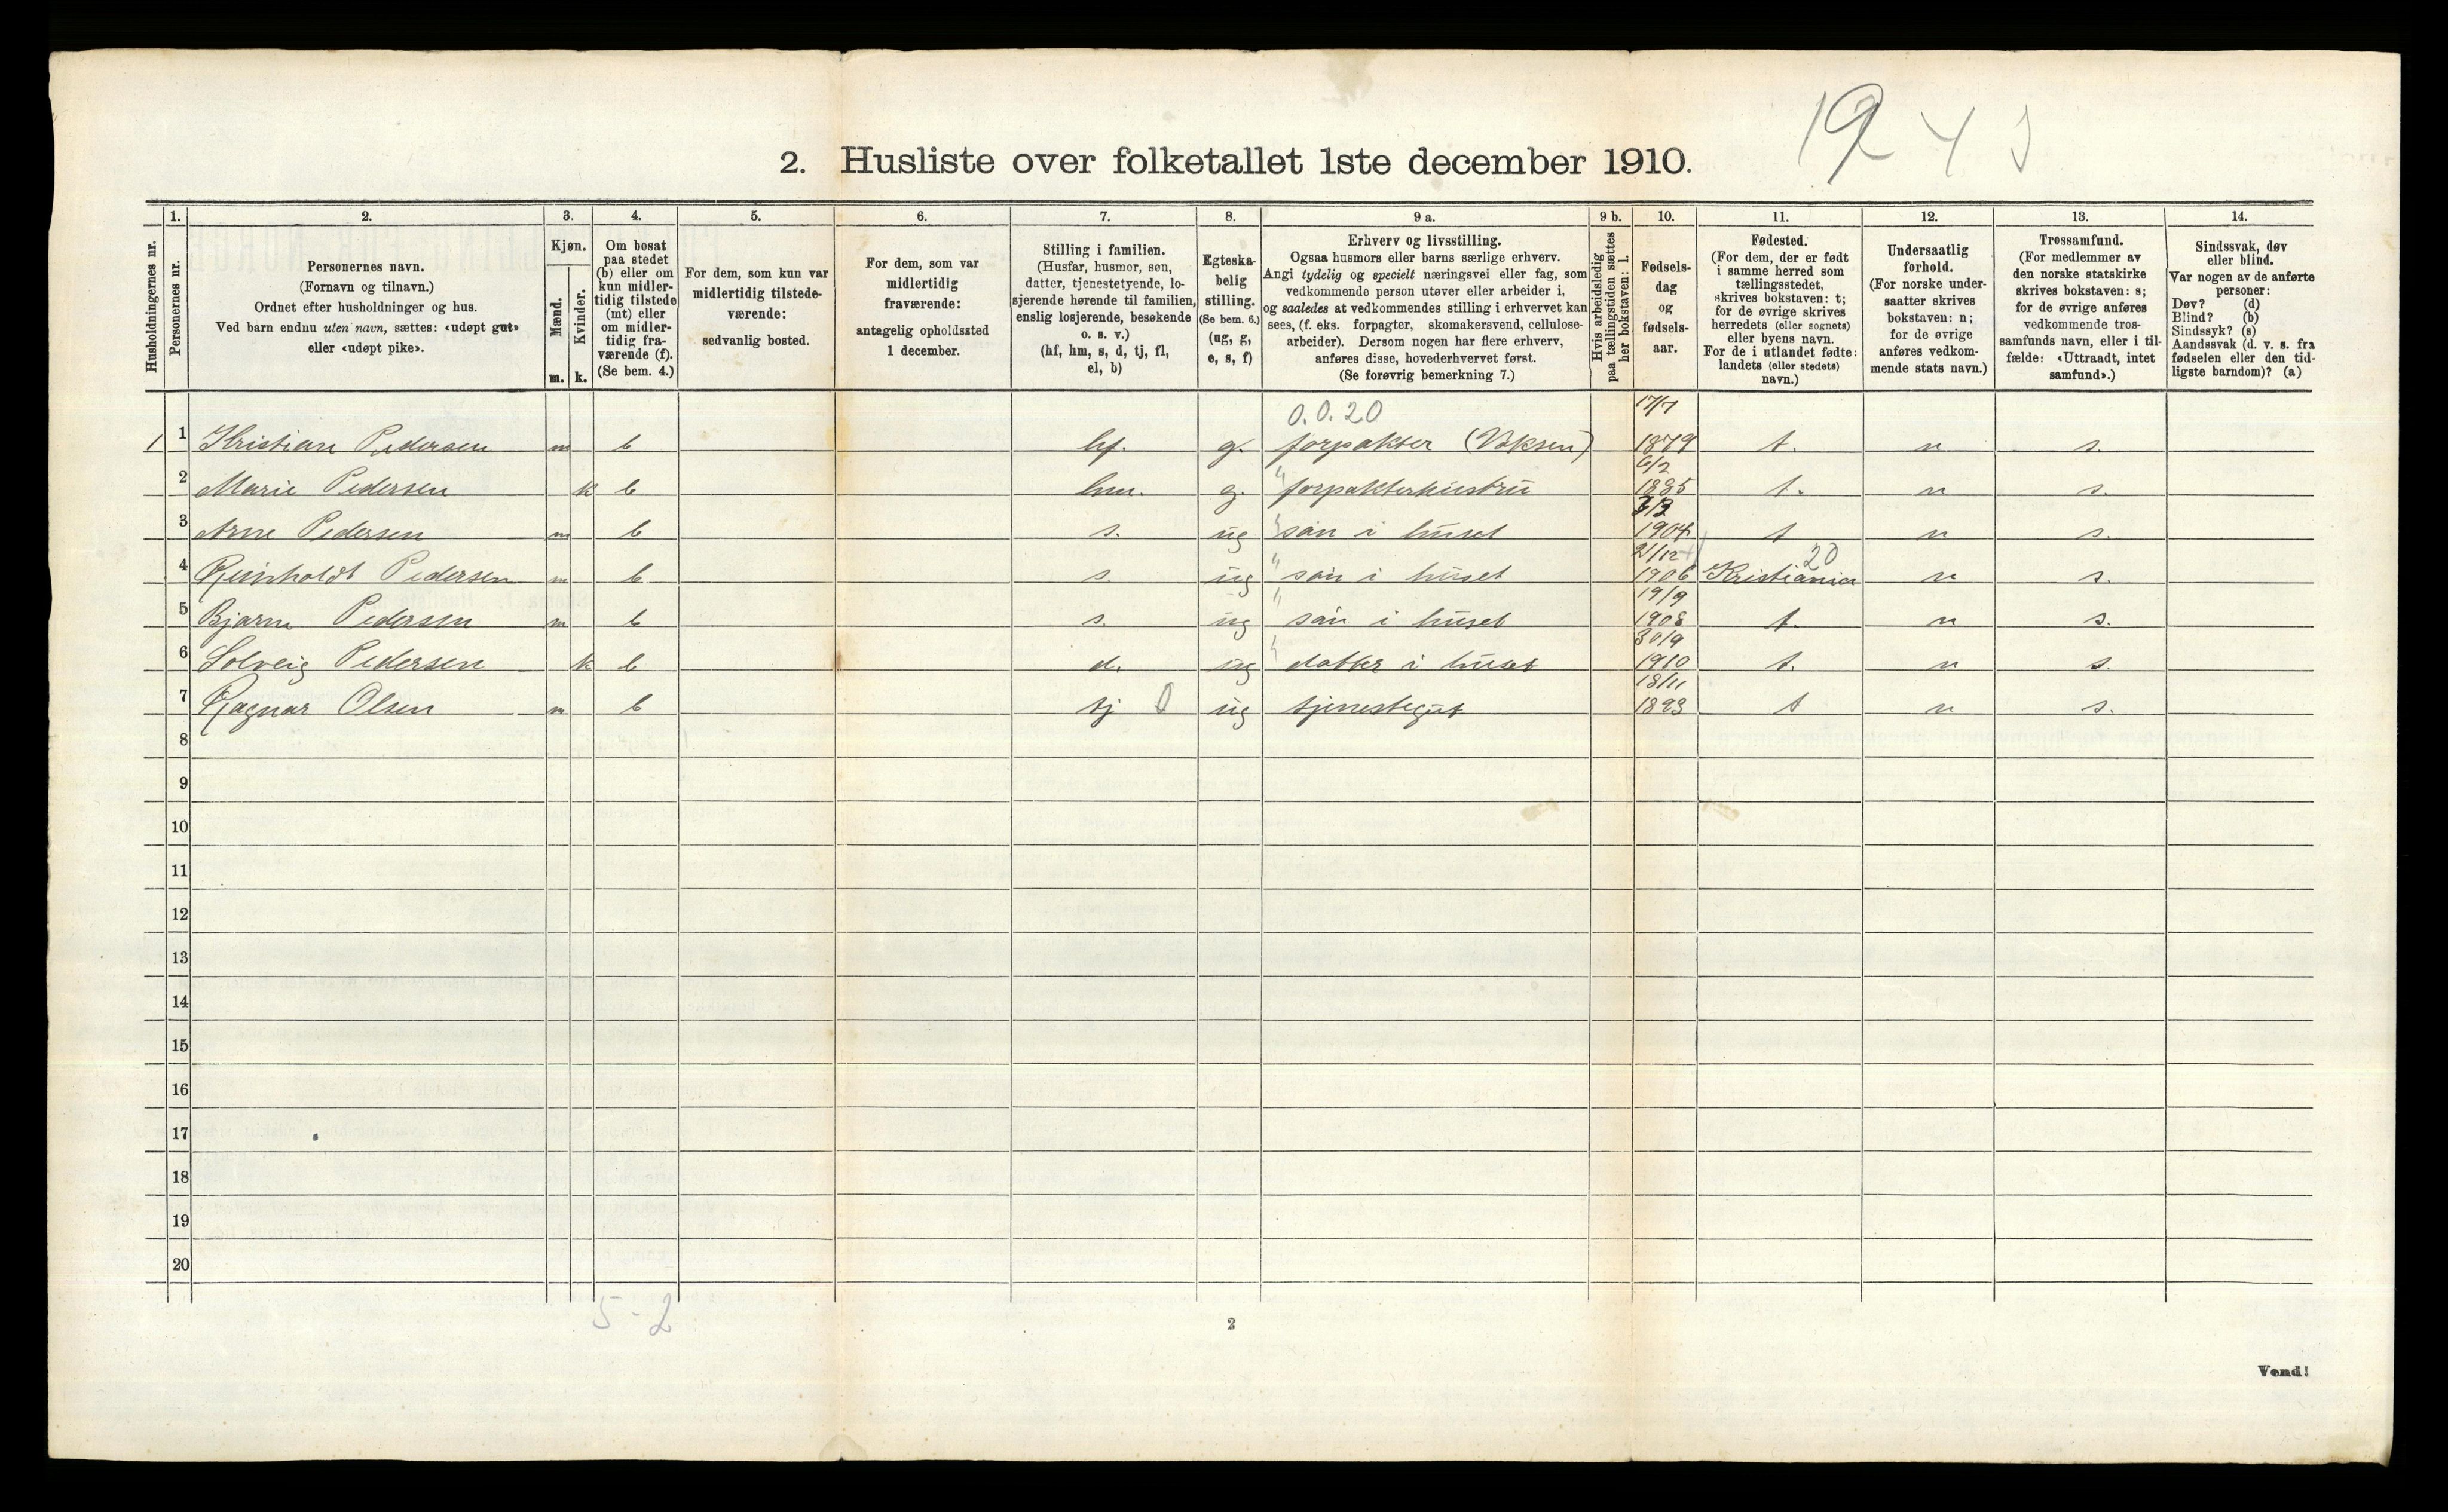 19 4 J
2. Husliste over folketallet 1ste december 1910.
Husholdningernes nr.
1. Personernes nr.
2. Personernes navn.
(Fornavn og tilnavn.)
Ordnet efter husholdninger og hus.
Ved barn endnu uten navn, sættes: «udøpt gut»
eller «udøpt pike».
3. Kjøn.
Mænd. m.
Kvinder. k.
4. Om bosat
paa stedet
(b) eller om
kun midler-
tidig tilstede
(mt) eller
om midler-
tidig fra-
værende (f).
(Se bem. 4.)
5. For dem, som kun var
midlertidig tilstede-
værende:
sedvanlig bosted.
6. For dem, som var
midlertidig
fraværende:
antagelig opholdssted
1 december.
7. Stilling i familien.
(Husfar, husmor, søn,
datter, tjenestetyende, lo-
sjerende hørende til familien,
enslig losjerende, besøkende
o. s. v.)
(hf, hm, s, d, tj, fl,
el, b)
8. Egteska-
belig
stilling.
(Se bem. 6.)
(ug, g,
e, s, f)
9 a. Erhverv og livsstilling.
Ogsaa husmors eller barns særlige erhverv.
Angi tydelig og specielt næringsvei eller fag, som
vedkommende person utøver eller arbeider i,
og saaledes at vedkommendes stilling i erhvervet kan
sees, (f. eks. forpagter, skomakersvend, cellulose-
arbeider). Dersom nogen har flere erhverv,
anføres disse, hovederhvervet først.
(Se forøvrig bemerkning 7.)
9 b. Hvis arbeidsledig
paa tællingstiden sættes
her bokstaven: l.
10. Fødsels-
dag
og
fødsels-
aar.
11. Fødested.
(For dem, der er født
i samme herred som
tællingsstedet,
skrives bokstaven: t;
for de øvrige skrives
herredets (eller sognets)
eller byens navn.
For de i utlandet fødte:
landets (eller stedets)
navn.)
12. Undersaatlig
forhold.
(For norske under-
saatter skrives
bokstaven: n;
for de øvrige
anføres vedkom-
mende stats navn.)
13. Trossamfund.
(For medlemmer av
den norske statskirke
skrives bokstaven: s;
for de øvrige anføres
vedkommende tros-
samfunds navn, eller i til-
fælde: «Uttraadt, intet
samfund».)
14. Sindssvak, døv
eller blind.
Var nogen av de anførte
personer:
Døv? (d)
Blind? (b)
Sindssyk? (s)
Aandssvak (d. v. s. fra
fødselen eller den tid-
ligste barndom)? (a)
0.0.20 17/7
1 1 Kristian Pedersen m b hf. g. forpakter (Voksen) 1879 t. n s.
6/2
2 Marie Pedersen k b hm. g. " forpakterhustru 1885 t. n s.
3 Arne Pedersen m b s. ug " søn i huset 1904 t n s.
21/12 20
4 Reinholdt Pedersen m b s. ug " søn i huset 1906 Kristiania n s.
19/9
5 Bjarne Pedersen m b s. ug " søn i huset 1908 t. n s.
30/9
6 Solveig Pedersen k b d. ug " datter i huset 1910 t. n s.
18/11
7 Ragnar Olsen m b tj 0 ug tjenestegut 1893 t n s.
8
9
10
11
12
13
14
15
16
17
18
19
20
5-2
2
Vend!